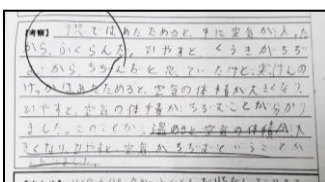 【考察】 では、あたためると、中に空気が入った
から、ふくらんだ、ひやすと、くうきがちぢ
から、ちぢんだと思っていたけど、実けんの
けっかはあたためると、空気の体せきが大きくなり、
ひやすと、空気の体せきがちぢむことが分かり
ました。このことから、温めると空気の体積が大
きくなり、ひやすと、空気がちぢむということが